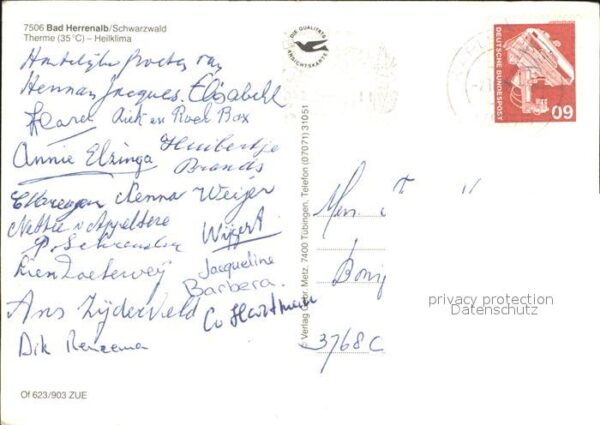 7506 Bad Herrenalb/Schwarzwald
Therme (35°C) – Heilklima
DIE QUALITÄTS
ANSICHTSKARTE
DEUTSCHE BUNDESPOST
60
Hartelijke groeten van
Herman, Jacques, Elisabeth
Karel Riek en Roel Box
Annie Elzinga Huibertje
Brands
Henna Weijer
Nettie v Appeldere
Wijgert
Lien Zoeterweij Jacqueline
Barbera.
Ans Zijderveld Co Hartman
Dik Renzema
Verlag Gebr. Metz, 7400 Tübingen, Telefon (07071) 31051
3768 C
privacy protection
Datenschutz
Of 623/903 ZUE